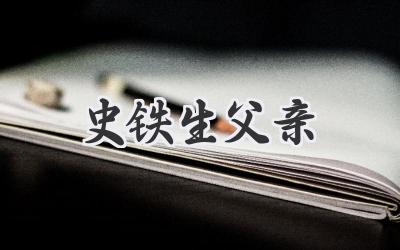 史铁生父亲